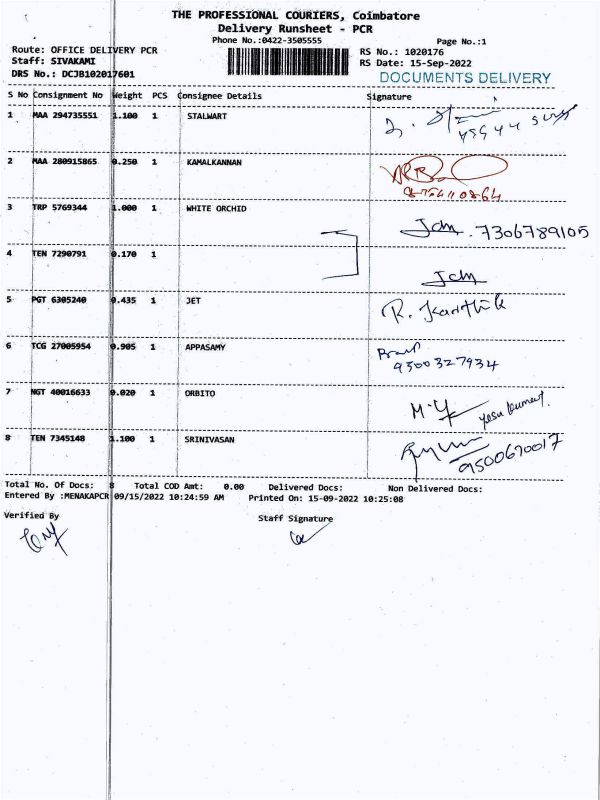 THE PROFESSIONAL COURIERS, Coimbatore
Delivery Runsheet - PCR
Phone No.:0422-3505555 Page No.:1
Route: OFFICE DELIVERY PCR RS No.: 1020176
Staff: SIVAKAMI RS Date: 15-Sep-2022
DRS No.: DCJB102017601 DOCUMENTS DELIVERY
S No Consignment No Weight PCS Consignee Details Signature
1 MAA 294735551 1.100 1 STALWART
2 MAA 280915865 0.250 1 KAMALKANNAN
8754110864
3 TRP 5769344 1.000 1 WHITE ORCHID 7306789105
4 TEN 7290791 0.170 1
5 PGT 6305240 0.435 1 JET R. Karthik
6 TCG 27005954 0.905 1 APPASAMY
9500327934
7 NGT 40016633 0.020 1 ORBITO
8 TEN 7345148 1.100 1 SRINIVASAN 9500670017
Total No. Of Docs: 8 Total COD Amt: 0.00 Delivered Docs: Non Delivered Docs:
Entered By :MENAKAPCR 09/15/2022 10:24:59 AM Printed On: 15-09-2022 10:25:08
Verified By Staff Signature